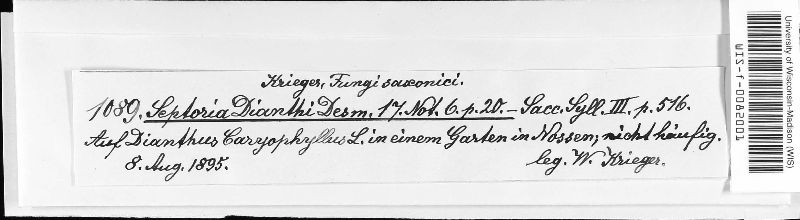 Krieger, Fungi saxonici.
1089. Septoria Dianthi Desm. 17. Not. 6. p. 20. – Sacc. Syll. III. p. 516.
Auf Dianthus Caryophyllus L. in einem Garten in Nossen; nicht häufig.
8. Aug. 1895. leg. W. Krieger.
University of Wisconsin-Madison (WIS)
WIS-f-0082001